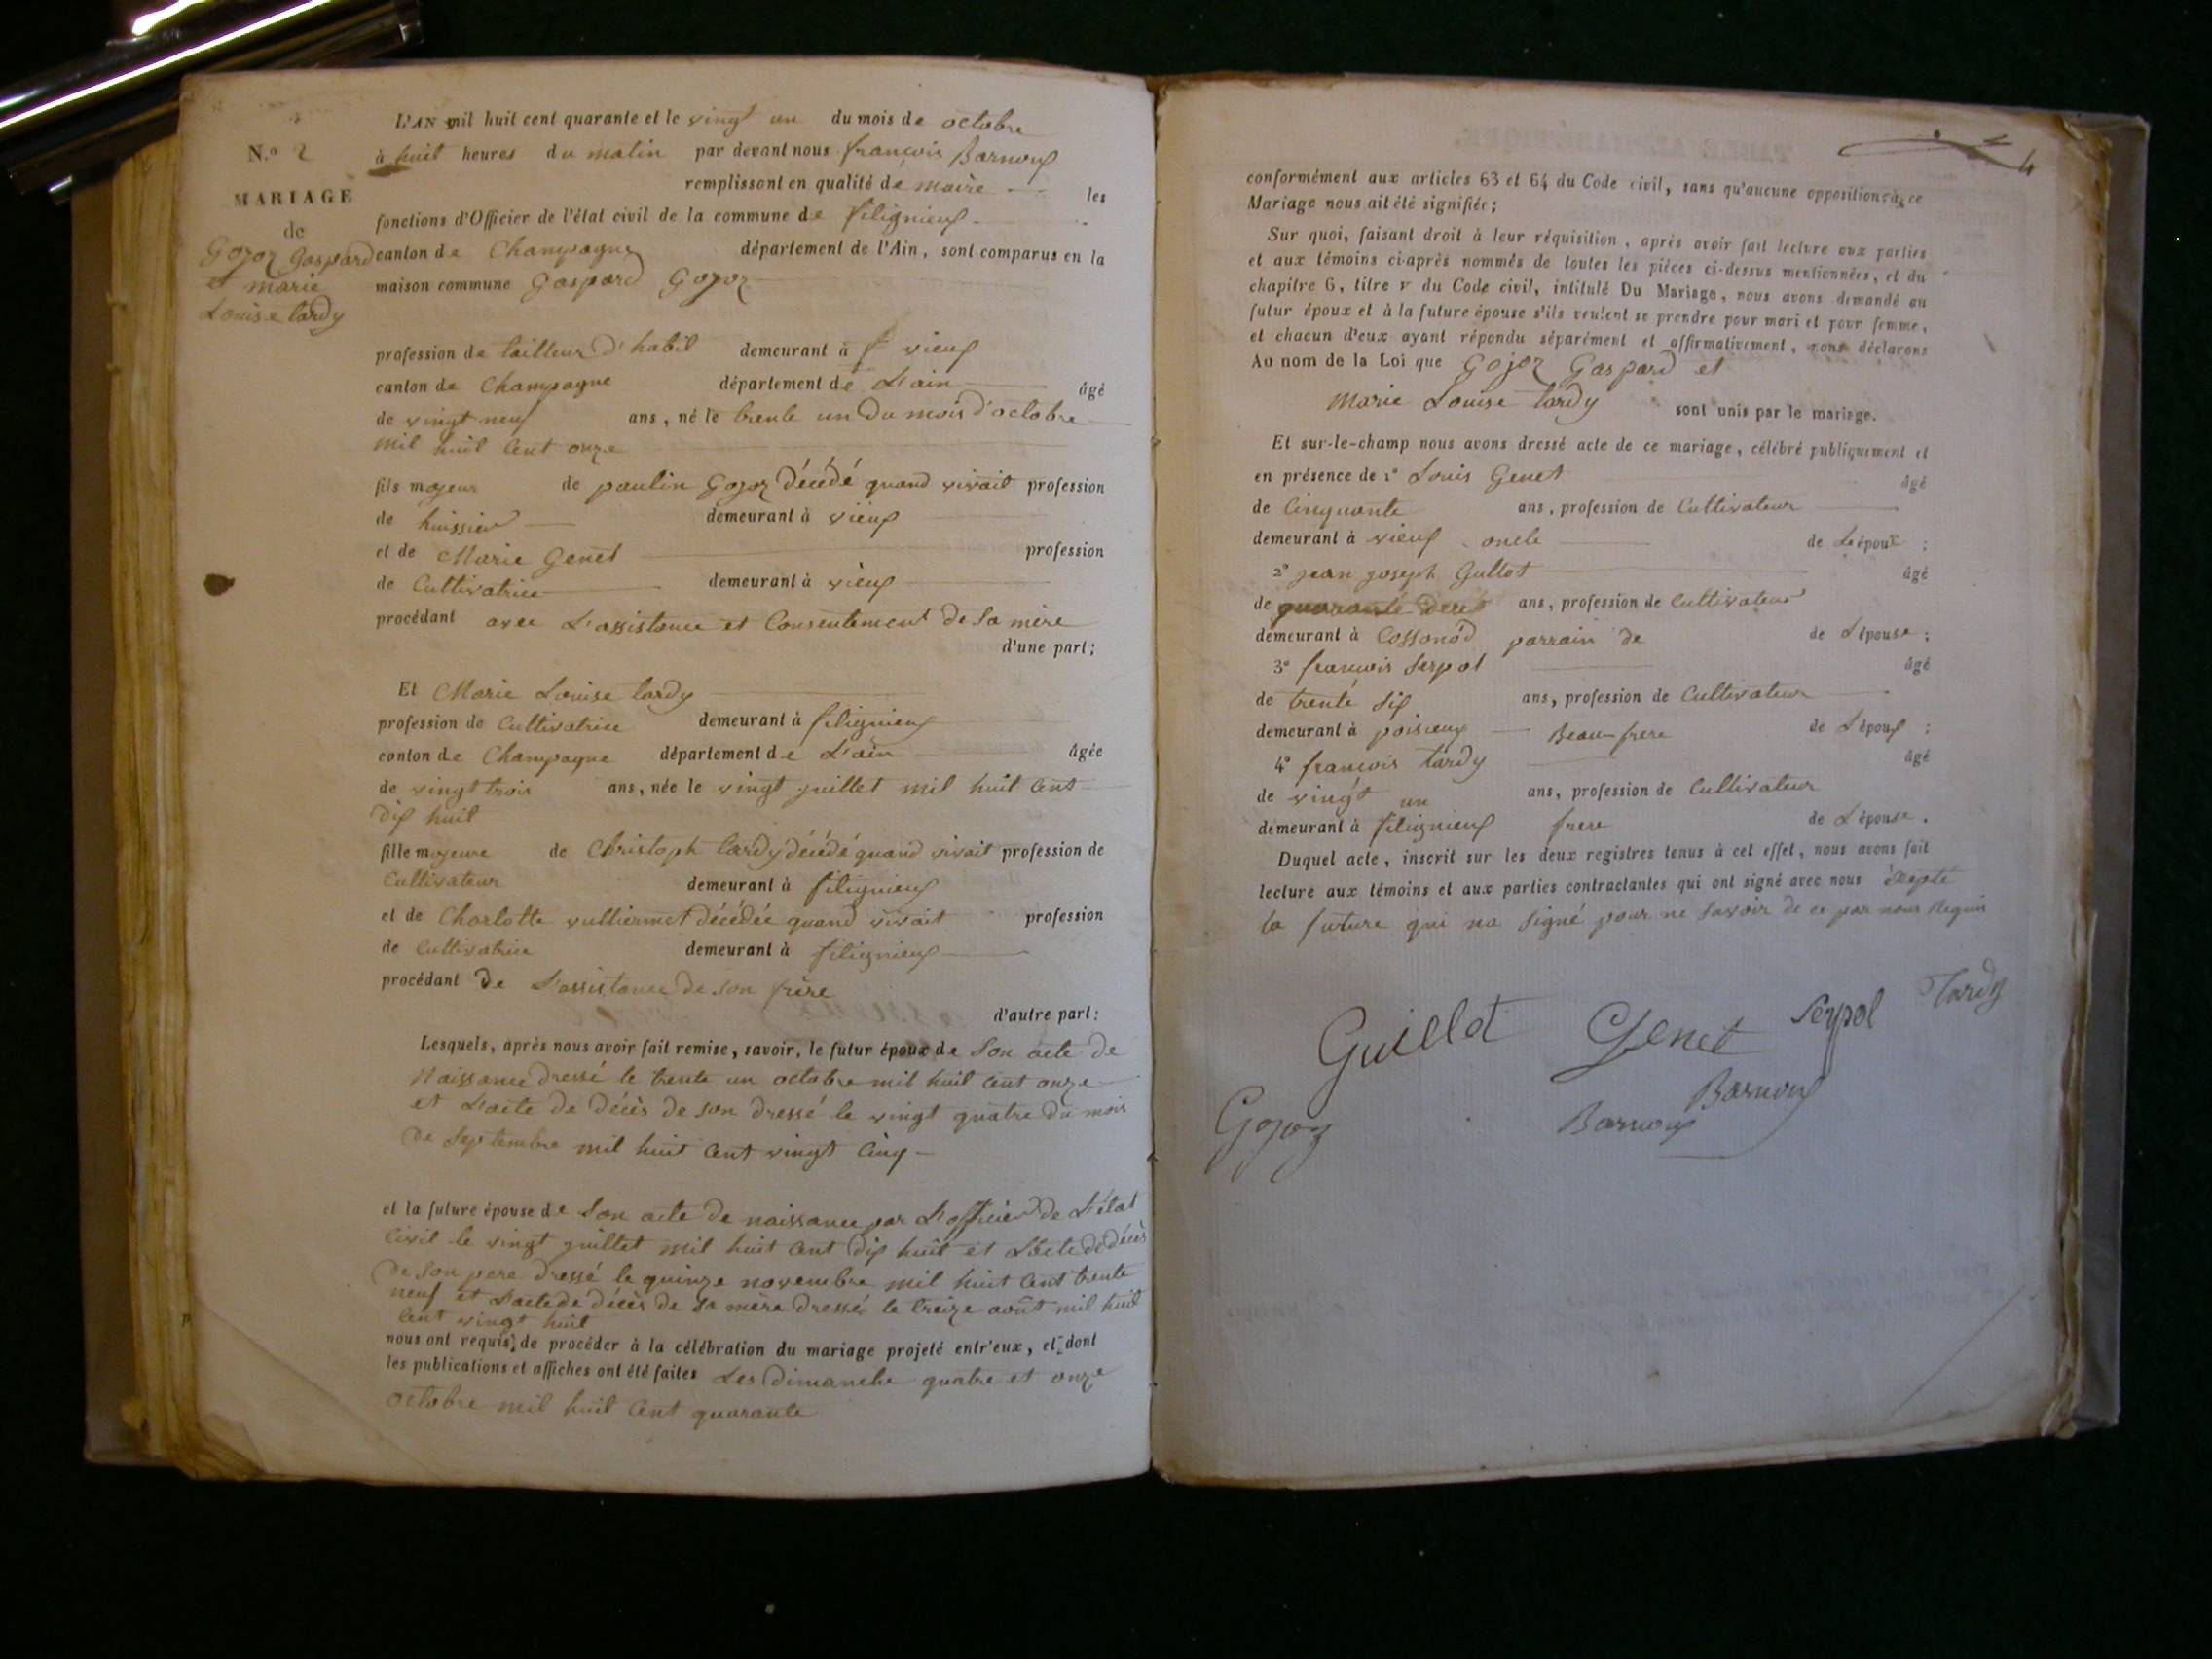 L'AN mil huit cent quarante et le vingt un du mois de octobre
N.o 2
à huit heures du matin par devant nous francois Barnoux
remplissont en qualité de maire les
MARIAGE
fonctions d'Officier de l'état civil de la commune de filignieux
de
Gojoz gaspard
canton de Champagne département de l'Ain, sont comparus en la
et marie
maison commune Gaspard Gojoz
Louise tardy
profession de tailleur d'habit demeurant à vieux
canton de Champagne département de L'ain âgé
de vingt neuf ans, né le trente un du mois d'octobre
mil huit cent onze
fils majeur de paulin Gojoz décédé quand vivait profession
de huissier demeurant à vieux
et de Marie Genet profession
de Cultivatrice demeurant à vieux
procédant avec L'assistance et Consentement de sa mère
d'une part;
Et Marie Louise tardy
profession de Cultivatrice demeurant à filignieux
canton de Champagne département de L'ain âgée
de vingt trois ans, née le vingt juillet mil huit cent
dix huit
fille majeure de Christoph tardy décédé quand vivait profession de
Cultivateur demeurant à filignieux
et de Charlotte vulliermet décédée quand vivait profession
de Cultivatrice demeurant à filignieux
procédant de L'assistance de son frère
d'autre part:
Lesquels, après nous avoir fait remise, savoir, le futur époux de Son acte de
Naissance dressé le trente un octobre mil huit cent onze
et L'acte de décès de son dressé le vingt quatre du mois
de Septembre mil huit cent vingt cinq
et la future épouse de Son acte de naissance par L'officier de L'état
civil le vingt juillet mil huit cent dix huit et L'acte de décès
de Son pere dressé le quinze novembre mil huit cent trente
neuf et L'acte de décès de sa mère dressé le treize août mil huit
cent vingt huit
nous ont requis de procéder à la célébration du mariage projeté entr'eux, et dont
les publications et affiches ont été faites Les dimanche quatre et onze
octobre mil huit cent quarante
4
conformément aux articles 63 et 64 du Code civil, sans qu'aucune opposition à ce
Mariage nous ait été signifiée;
Sur quoi, faisant droit à leur réquisition, après avoir fait lecture aux parties
et aux témoins ci-après nommés de toutes les pièces ci-dessus mentionnées, et du
chapitre 6, titre v du Code civil, intitulé Du Mariage, nous avons demandé au
futur époux et à la future épouse s'ils veulent se prendre pour mari et pour femme,
et chacun d'eux ayant répondu séparément et affirmativement, nous déclarons
Au nom de la Loi que Gojoz Gaspard et
Marie Louise tardy sont unis par le mariage.
Et sur-le-champ nous avons dressé acte de ce mariage, célébré publiquement et
en présence de 1o Louis Genet âgé
de Cinquante ans, profession de Cultivateur
demeurant à vieux oncle de Lépoux;
2o jean joseph Gullot âgé
de quarante ans, profession de Cultivateur
demeurant à Cossonod parrain de de Lépouse;
3o francois Serpol âgé
de trente six ans, profession de Cultivateur
demeurant à poisieux Beau-frere de Lépoux;
4o francois tardy âgé
de vingt un ans, profession de Cultivateur
demeurant à filignieux frere de Lépouse.
Duquel acte, inscrit sur les deux registres tenus à cet effet, nous avons fait
lecture aux témoins et aux parties contractantes qui ont signé avec nous Exepté
la future qui na signé pour ne savoir de ce par nous Requis
Guillot Genet Serpol Tardy
Gojoz Barnoux Barnoux